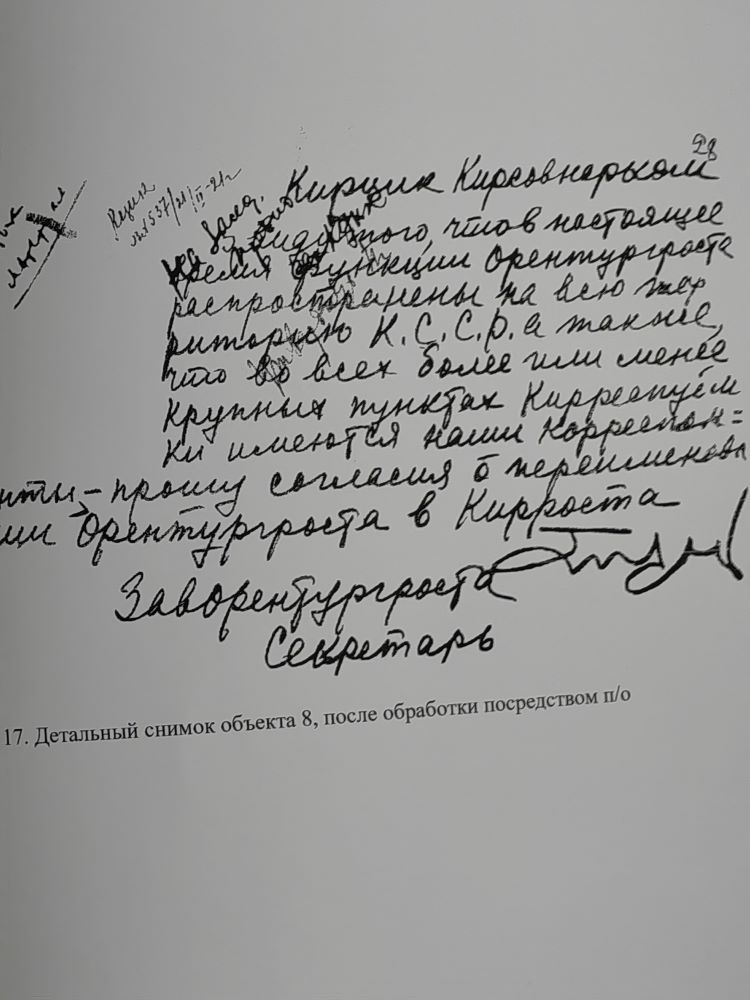 28
Кирцик Кирсовнаркол
на засед.
Ввиду того, что в настоящее
время функции Орентургроста
распространены на всю тер
риторию К.С.С.Р. а также,
что во всех более или менее
крупных пунктах Кирреспуем
ки имеются наши корреспон=
нты – прошу согласия о переименова
нии Орентургроста в Кирроста
Заворентургроста
Секретарь
17. Детальный снимок объекта 8, после обработки посредством п/о